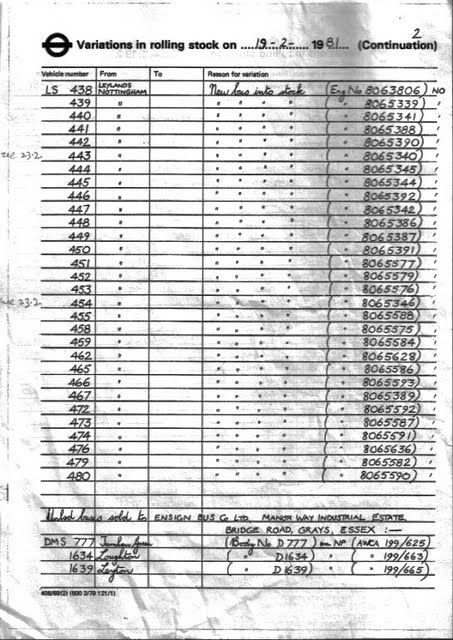 2
Variations in rolling stock on ....19.-.2.-..... 1981.... (Continuation)
Vehicle number From To Reason for variation
LS 438 LEYLANDS NOTTINGHAM New bus into stock (Eng No 8063806) NO
439 " " " " " ( " 8065339) "
440 " " " " " ( " 8065341) "
441 " " " " " ( " 8065388) "
442 " " " " " ( " 8065390) "
23.2 443 " " " " " ( " 8065340) "
444 " " " " " ( " 8065345) "
445 " " " " " ( " 8065344) "
446 " " " " " ( " 8065392) "
447 " " " " " ( " 8065342) "
448 " " " " " ( " 8065386) "
449 " " " " " ( " 8065387) "
450 " " " " " ( " 8065391) "
451 " " " " " ( " 8065577) "
452 " " " " " ( " 8065579) "
453 " " " " " ( " 8065576) "
23.2 454 " " " " " ( " 8065346) "
455 " " " " " ( " 8065588) "
458 " " " " " ( " 8065575) "
459 " " " " " ( " 8065584) "
462 " " " " " ( " 8065628) "
465 " " " " " ( " 8065586) "
466 " " " " " ( " 8065593) "
467 " " " " " ( " 8065389) "
472 " " " " " ( " 8065592) "
473 " " " " " ( " 8065587) "
474 " " " " " ( " 8065591) "
476 " " " " " ( " 8065636) "
479 " " " " " ( " 8065582) "
480 " " " " " ( " 8065590) "
buses sold to ENSIGN BUS Co LTD, MANOR WAY INDUSTRIAL ESTATE,
BRIDGE ROAD, GRAYS, ESSEX :—
DMS 777 Turnham Green (Body No D777) on Nº (AWCA 199/625)
1634 Loughton ( " D1634) " ( " 199/663)
1639 Leyton ( " D1639) " ( " 199/665)